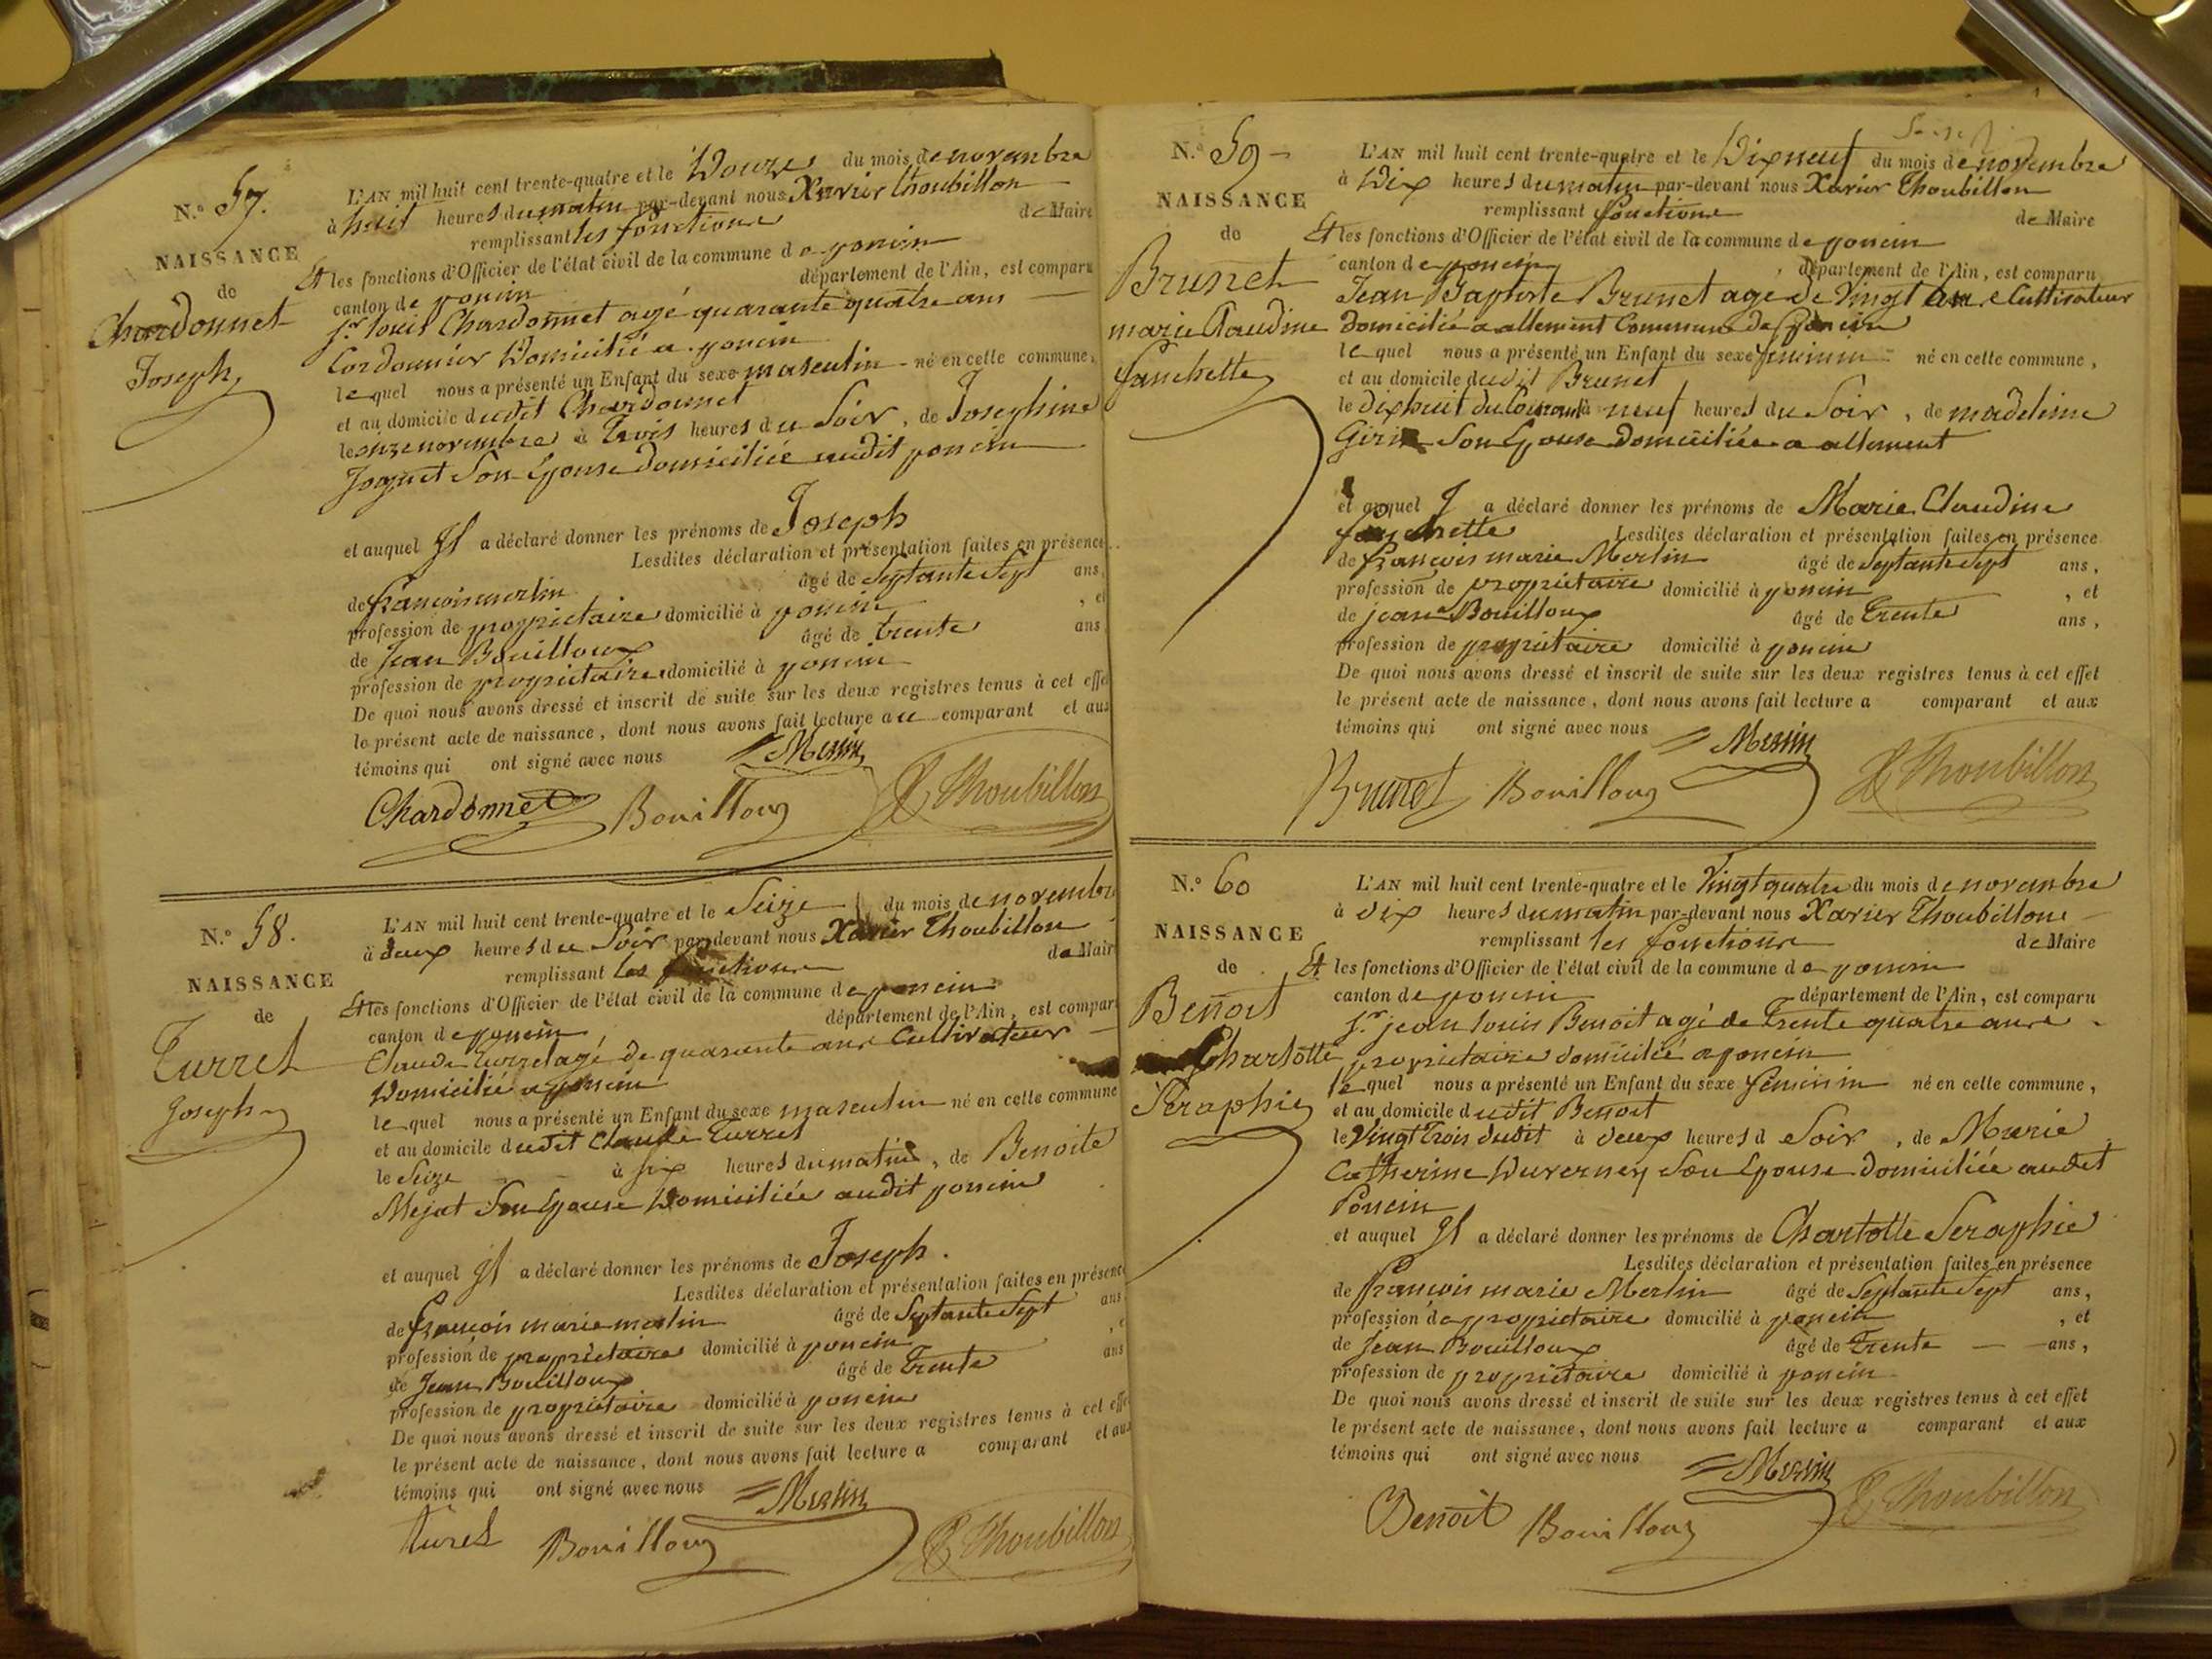 N.o 57.
NAISSANCE
de
Chardonnet
Joseph
L'AN mil huit cent trente-quatre et le Douze du mois de novembre
à huit heures du matin par-devant nous Xavier Thoubillon
remplissant les fonctions de Maire
Et les fonctions d'Officier de l'état civil de la commune de poncin
canton de poncin département de l'Ain, est comparu
Sr. louis Chardonnet agé quarante quatre ans
Cordonnier Domicilié a poncin
lequel nous a présenté un Enfant du sexe masculin né en cette commune,
et au domicile dudit Chardonnet
le onze novembre à Trois heures du Soir, de Josephine
Joguet Son Epouse domiciliée audit poncin
et auquel Il a déclaré donner les prénoms de Joseph
Lesdites déclaration et présentation faites en présence
de françois merlin âgé de Septante Sept ans,
profession de propriétaire domicilié à poncin, et
de Jean Bouilloux âgé de trente ans
profession de propriétaire domicilié à poncin
De quoi nous avons dressé et inscrit de suite sur les deux registres tenus à cet effe
le présent acte de naissance, dont nous avons fait lecture au comparant et aux
témoins qui ont signé avec nous Merlin
Chardonnet Bouilloux X Thoubillon
N.o 58.
NAISSANCE
de
Turrel
Joseph
L'AN mil huit cent trente-quatre et le Seize du mois de novembre
à deux heures du Soir par-devant nous Xavier Thoubillon
remplissant les fonctions de Mair
Et les fonctions d'Officier de l'état civil de la commune de poncin
canton de poncin département de l'Ain, est compar
Claude Turrel agé de quarante ans Cultivateur
Domicilié a poncin
lequel nous a présenté un Enfant du sexe masculin né en cette commune
et au domicile dudit Claude Turrel
le Seize à Six heures du matin, de Benoite
Mejat Son Epouse Domiciliée audit poncin
et auquel Il a déclaré donner les prénoms de Joseph.
Lesdites déclaration et présentation faites en présence
de françois marie merlin âgé de Septante Sept ans
profession de propriétaire domicilié à poncin
de Jean Bouilloux âgé de Trente ans
profession de propriétaire domicilié à poncin
De quoi nous avons dressé et inscrit de suite sur les deux registres tenus à cet effe
le présent acte de naissance, dont nous avons fait lecture a comparant et aux
témoins qui ont signé avec nous Merlin
Turel Bouilloux X Thoubillon
N.o 59
NAISSANCE
de
Brunet
marie Claudine
fanchette
L'AN mil huit cent trente-quatre et le Dix neuf du mois de novembre
à Dix heures du matin par-devant nous Xavier Thoubillon
remplissant fonctions de Maire
Et les fonctions d'Officier de l'état civil de la commune de poncin
canton de poncin, département de l'Ain, est comparu
Jean Baptiste Brunet agé de Vingt Cultivateur
domicilié a allement Commune de poncin
lequel nous a présenté un Enfant du sexe feminin né en cette commune,
et au domicile dudit Brunet
le dixhuit du Courant à neuf heures du Soir, de madeleine
Girin Son Epouse domiciliée a allement
et auquel I a déclaré donner les prénoms de Marie Claudine
fanchette Lesdites déclaration et présentation faites en présence
de françois marie Merlin âgé de Septante Sept ans,
profession de propriétaire domicilié à poncin, et
de jean Bouilloux âgé de Trente ans,
profession de propriétaire domicilié à poncin
De quoi nous avons dressé et inscrit de suite sur les deux registres tenus à cet effet
le présent acte de naissance, dont nous avons fait lecture a comparant et aux
témoins qui ont signé avec nous Merlin
Brunet Bouilloux X Thoubillon
N.o 60
NAISSANCE
de
Benoit
Charlotte
Séraphie
L'AN mil huit cent trente-quatre et le Vingt quatre du mois de novembre
à dix heures du matin par-devant nous Xavier Thoubillon
remplissant les fonctions de Maire
Et les fonctions d'Officier de l'état civil de la commune de poncin
canton de poncin département de l'Ain, est comparu
Sr. jean louis Benoit agé de Trente quatre ans
propriétaire domicilié a poncin
lequel nous a présenté un Enfant du sexe feminin né en cette commune,
et au domicile dudit Benoit
le Vingt Trois dudit à deux heures d Soir, de Marie
Catherine Duverney Son Epouse domiciliée audit
Poncin
et auquel Il a déclaré donner les prénoms de Charlotte Seraphie
Lesdites déclaration et présentation faites en présence
de françois marie Merlin âgé de Septante Sept ans,
profession de propriétaire domicilié à poncin, et
de Jean Bouilloux âgé de Trente ans,
profession de propriétaire domicilié à poncin
De quoi nous avons dressé et inscrit de suite sur les deux registres tenus à cet effet
le présent acte de naissance, dont nous avons fait lecture a comparant et aux
témoins qui ont signé avec nous Merlin
Benoit Bouilloux X Thoubillon